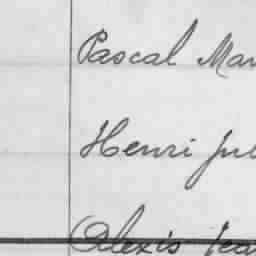 Pascal Mar
Henri Jul
Alexis Jea